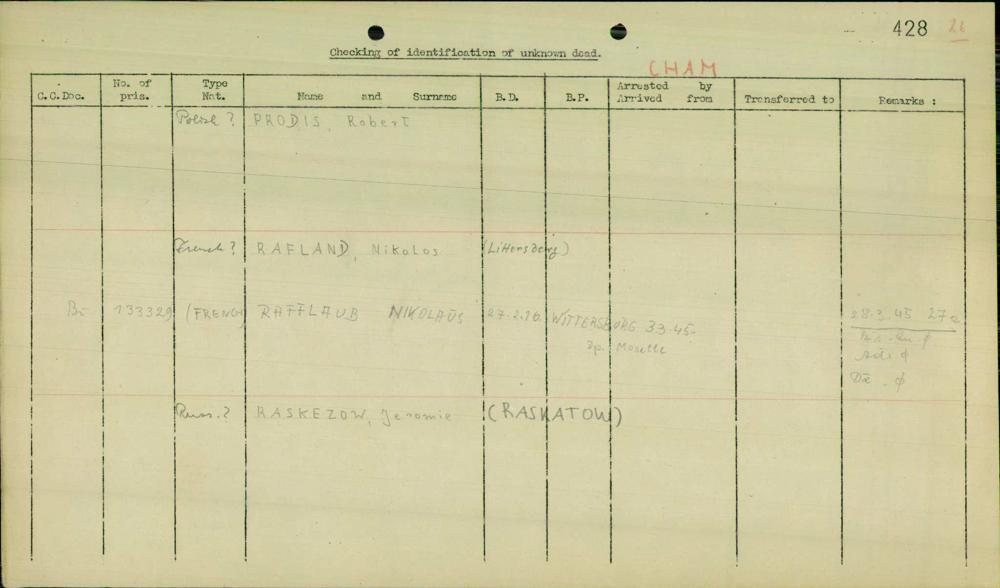 428 26
Checking of identification of unknown dead.
CHAM
C.C.Doc. No. of pris. Type Nat. Name and Surname B.D. B.P. Arrested by Arrived from Transferred to Remarks :
Polish ? PRODIS, Robert
French ? RAFLAND, Nikolos (Littersberg)
133329 (FRENCH) RAFFLAUB NIKOLAUS 27.2.26 WITTERSBURG 3.3.45-
Dp. Moselle
28.3.45 27a
Russ. ? RASKEZOW, Jeromie (RASKATOW)